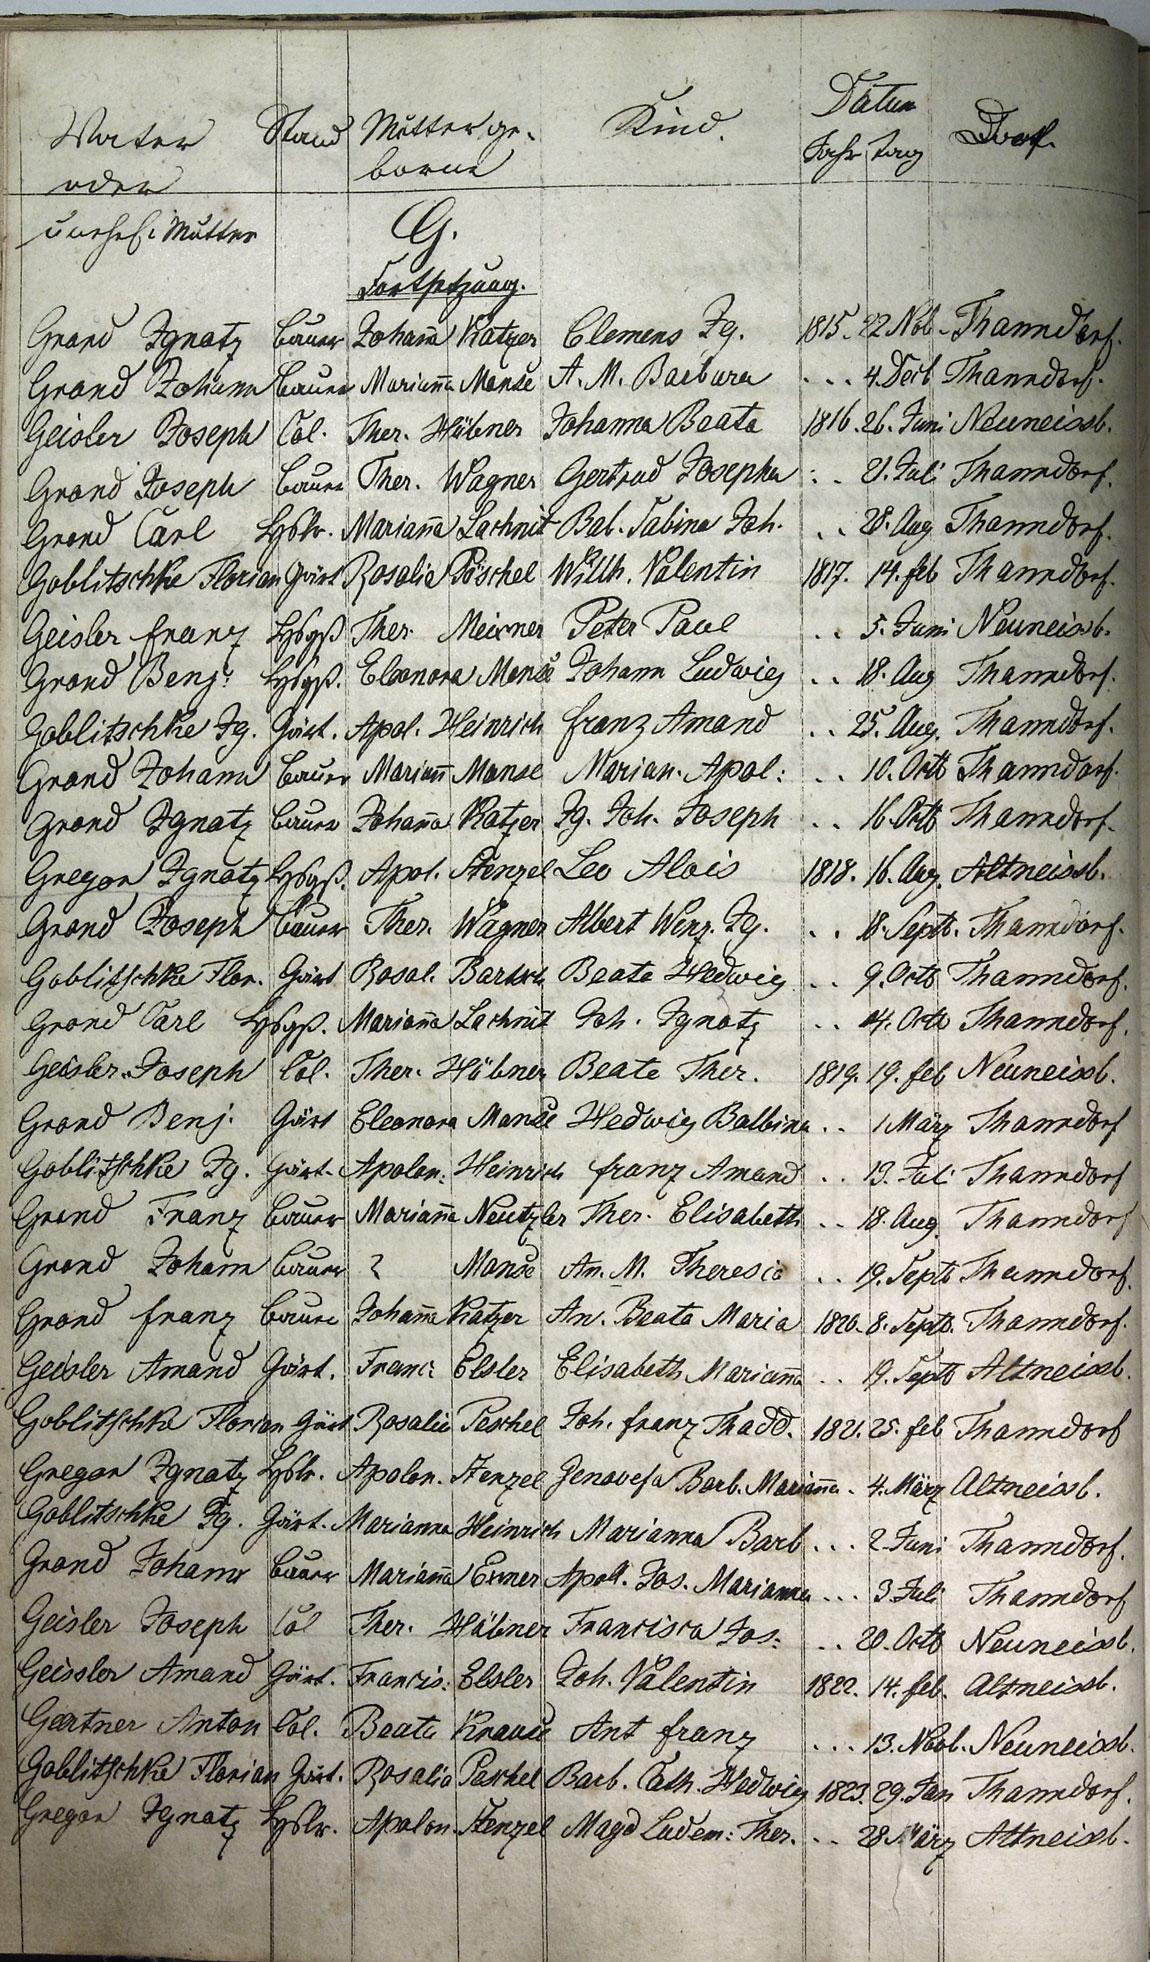 Vater Stand Mutter ge- Kind. Datum Dorf.
oder borne Jahr tag
unehel: Mutter
G.
Fortsetzung.
Grond Ignatz bauer Johan̄a Katzer Clemens Ig. 1815. 22 Nob. Thanndorf.
Grond Johann bauer Marian̄a Manse A. M. Barbara ... 4. Decb Thanndorf.
Geisler Joseph Col. Ther. Hübner Johanna Beata 1816. 26. Juni Neuneissb.
Grond Joseph bauer Ther. Wagner Gertrud Josepha .. 21. Juli Thanndorf.
Grond Carl Hslr. Marian̄a Lachnit Bab. Sabina Joh. .. 28. Aug Thanndorf.
Goblitschke Florian Gärt Rosalia Pöschel Willh. Valentin 1817. 14. feb Thanndorf.
Geisler franz Hsgß Ther. Meixner Peter Paul .. 5. Juni Neuneissb.
Grond Benj: Hsgß. Eleonora Manse Johann Ludwig .. 18. Aug Thanndorf.
Goblitschke Ig. Gärt. Apol. Heinrich franz Amand .. 25. Aug. Thanndorf.
Grond Johann bauer Marian̄ Manse Marian. Apol: .. 10. Octb Thanndorf.
Grond Ignatz bauer Johan̄a Katzer Ig. Joh. Joseph .. 16. Octb Thanndorf.
Gregor Ignatz Hsgß. Apol. Stenzel Leo Alois 1818. 16. Aug. Altneissb.
Grond Joseph bauer Ther. Wagner Albert Wenz. Ig. .. 18. Septb. Thanndorf.
Goblitschke Flor. Gärt Rosal. Bartsch Beata Hedwig .. 9. Octb Thanndorf.
Grond Carl Hsgß. Marian̄a Lachnit Joh. Ignatz .. 14. Octb Thanndorf.
Geisler Joseph Col. Ther. Hübner Beate Ther. 1819. 19. feb Neuneissb.
Grond Benj. Gärt Eleonora Manse Hedwig Balbina .. 1 März Thanndorf
Goblitschke Ig. Gärt. Apolon: Heinrich franz Amand .. 13. Juli Thanndorf
Grond Franz bauer Marian̄a Neutzler Ther. Elisabeth .. 18. Aug Thanndorf
Grond Johann bauer ? Manse An. M. Theresia .. 19. Septb Thanndorf.
Grond franz bauer Johan̄a Katzer An. Beata Maria 1820. 8. Septb. Thanndorf.
Geisler Amand Gärt. Franc: Elsler Elisabeth Marian̄a .. 19. Septb Altneissb.
Goblitschke Florian Gärt Rosalia Peschel Joh. franz Thadd. 1821. 25. feb Thanndorf
Gregor Ignatz Hslr. Apolon. Stenzel Genovefa Barb. Marian̄a . 4. März Altneissb.
Goblitschke Ig. Gärt. Marianna Heinrich Marianna Barb ... 2. Juni Thanndorf.
Grond Johann bauer Marian̄a Exner Apoll. Jos. Marianna ... 3. Juli Thanndorf
Geisler Joseph Col Ther. Hübner Francisca Jos: .. 20. Octb Neuneissb.
Geissler Amand Gärt. Francis: Elsler Joh. Valentin 1822. 14. feb. Altneissb.
Gertner Anton Col. Beate Krause Ant franz ... 13. Novb. Neuneissb.
Goblitschke Florian Gärt. Rosalia Peschel Barb. Cath. Hedwig 1823. 29. Jan Thanndorf.
Gregor Ignatz Hslr. Apolon. Stenzel Magd Ludem: Ther. .. 28 März Altneissb.